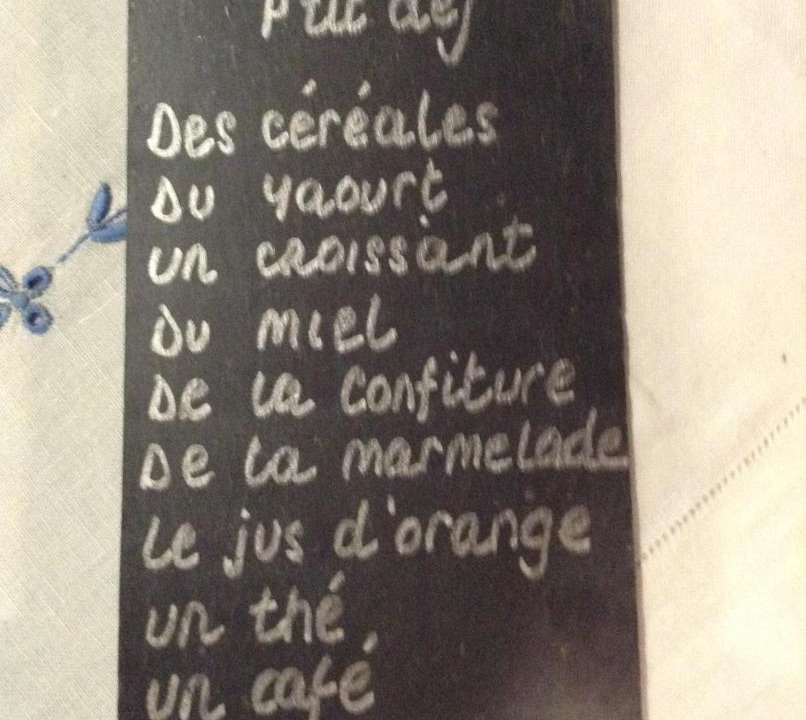 P'tit dej
Des céréales
Du yaourt
un croissant
Du miel
De la confiture
De la marmelade
Le jus d'orange
un thé
un café